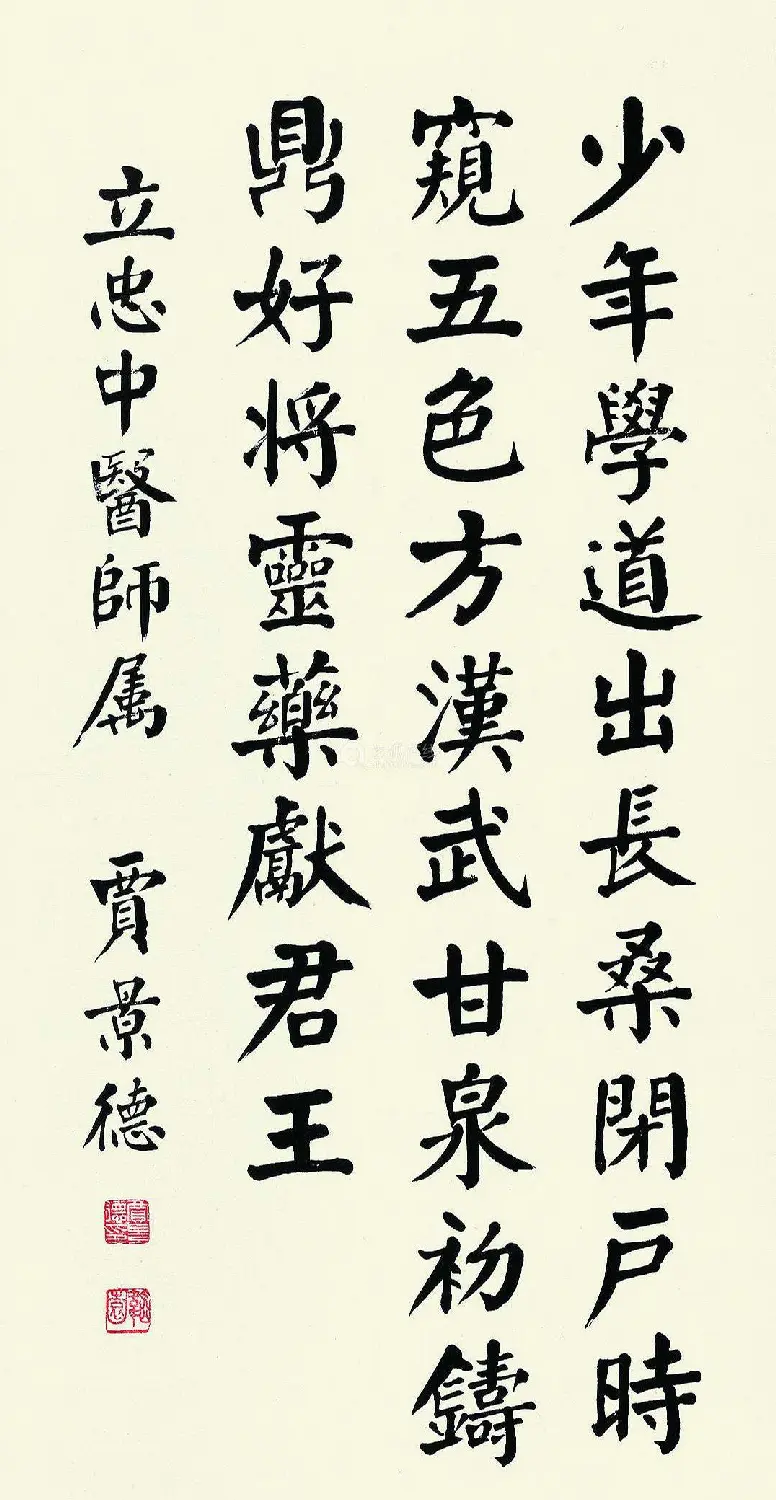 少年學道出長桑閉戶時
窺五色方漢武甘泉初鑄
鼎好将靈藥獻君王
立忠中醫師属 賈景德